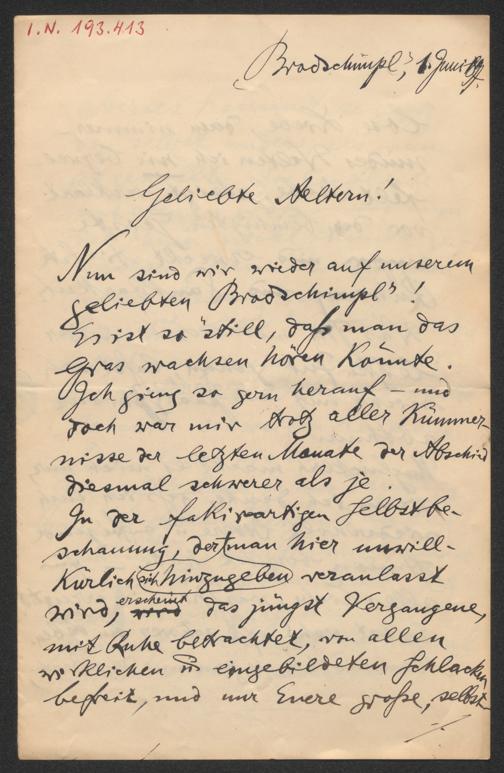 I.N. 193.413
"Brodschimpl", 1. Juni 89.
Geliebte Aeltern!
Nun sind wir wieder auf unserem
geliebten "Brodschimpl"!
Es ist so still, daß man das
Gras wachsen hören könnte.
Ich ging so gern herauf – und
doch war mir trotz aller Kümmer-
nisse der letzten Monate der Abschied
diesmal schwerer als je.
In der fakirartigen Selbstbe-
schauung, der man hier unwill-
kürlich sich hinzugeben veranlasst
wird, erscheint das jüngst Vergangene,
mit Ruhe betrachtet, von allen
wirklichen u eingebildeten Schlacken
befreit, und nur Euere große, selbst-